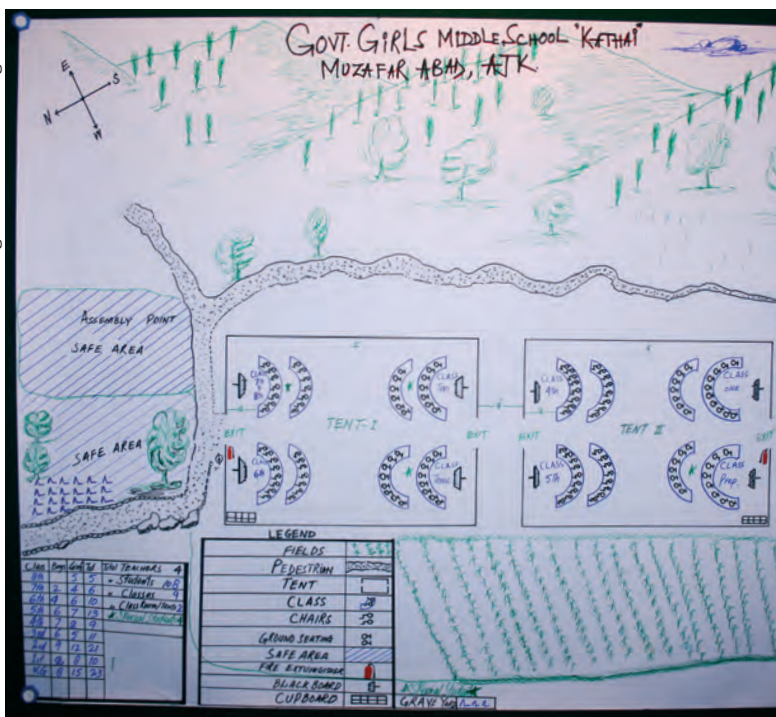 GOVT. GIRLS MIDDLE SCHOOL "KATHAI"
MUZAFAR ABAD, AJK.
E
S
N
W
ASSEMBLY POINT
SAFE AREA
SAFE AREA
CLASS
7th
8th
CLASS
CLASS
4th
CLASS
one
TENT-I
TENT II
EXIT
EXIT
EXIT
EXIT
CLASS
6th
CLASS
CLASS
5th
CLASS
Prep.
LEGEND
FIELDS
PEDESTRIAN
TENT
CLASS
CHAIRS
GROUND SEATING
SAFE AREA
FIRE EXTINGUISHER
BLACK BOARD
CUPBOARD
GRAVE Yard
Class Boys Girls Tol
8th 5 5
7th 2 4 6
6th 4 6 10
5th 6 7 13
4th 7 2 9
3rd 6 5 11
2nd 9 12 21
1st 2 8 10
KG 8 15 23
Total TEACHERS 4
" Students 108
" Classes 9
" Class Room/Tents 2